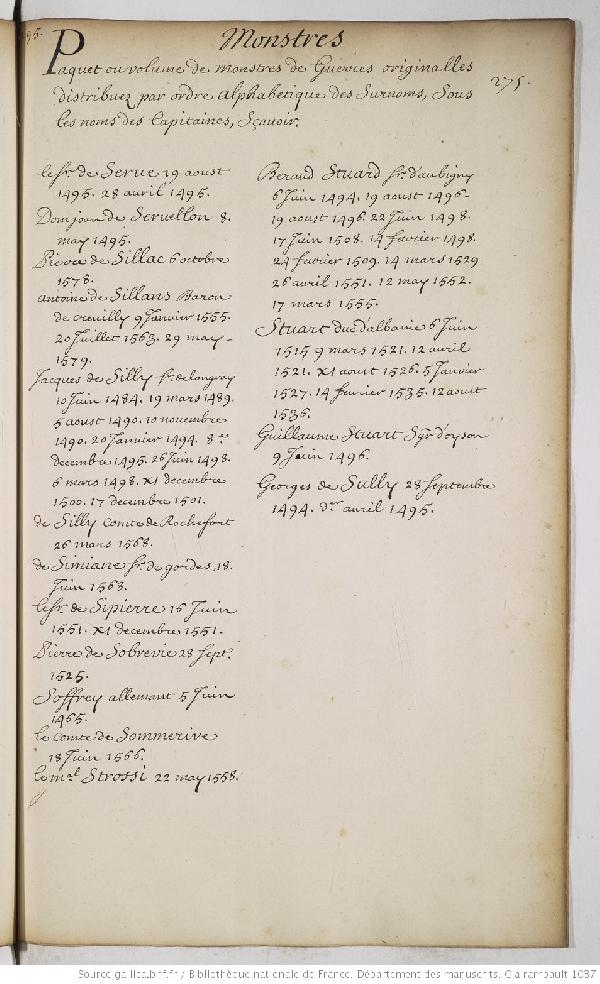 Monstres
Paquet ou volume de monstres de Guerres originalles
distribuez par ordre alphabetique des Surnoms, Sous
les noms des Capitaines, Sçavoir.
275.
le Sr. de Serue 19 aoust
1495. 28 auril 1495.
Dom joan de Seruellon 8.
may 1495.
Pierre de Sillac 6 octobre
1578.
Antoine de Sillans Baron
de creuilly 9 Janvier 1555.
20 Juillet 1563. 29 may
1579.
Jacques de Silly Sr. de longrey
10 Juin 1484. 19 mars 1489.
5 aoust 1490. 10 novembre
1490. 20 Janvier 1494. 8.
decembre 1495. 26 Juin 1498.
6 mars 1498. x1 decembre
1500. 17 decembre 1501.
de Silly Comte de Rochefort
26 mars 1568.
de Simiane Sr. de gordes 18.
Juin 1563.
le Sr. de Sipierre 15 Juin
1551. x1 decembre 1551.
Pierre de Sobrevie 28 Sept.
1525.
Soffrey allemant 5 Juin
1465.
le Comte de Sommerive
18 Juin 1566.
le mal Strossi 22 may 1558.
Beraud Stuard Sr. d'aubigny
6 Juin 1494. 19 aoust 1496.
19 aoust 1496. 22 Juin 1498.
17 Juin 1508. 14 fevrier 1498.
24 fevrier 1509. 14 mars 1529
26 avril 1551. 12 may 1552.
17 mars 1555.
Stuart duc d'albanie 6 Juin
1515 9 mars 1521. 12 avril
1521. x1 aout 1526. 5 Janvier
1527. 14 fevrier 1535. 12 aout
1536.
Guillaume Stuart Sgr d'oyson
9 Juin 1496.
Georges de Sully 28 Septembre
1494. dr avril 1495.
Source gallica.bnf.fr / Bibliothèque nationale de France. Département des manuscrits. Clairambault 1037